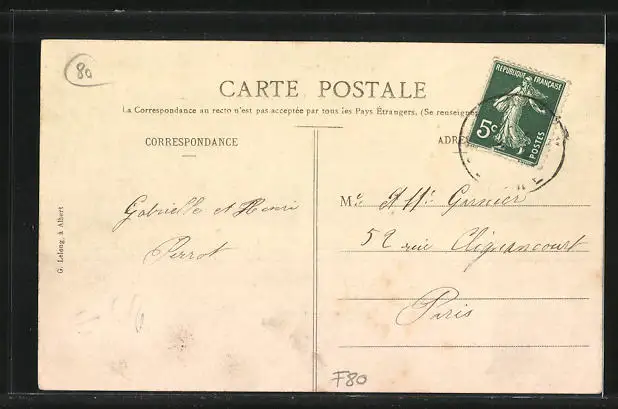 80
CARTE POSTALE
La Correspondance au recto n'est pas acceptée par tous les Pays Étrangers. (Se renseigne
RÉPUBLIQUE FRANÇAISE
5c
POSTES
CORRESPONDANCE
ADRE
Gabrielle et Henri
Perrot
M
Garnier
52 rue Clignancourt
Paris
G. Lelong, à Albert
F80